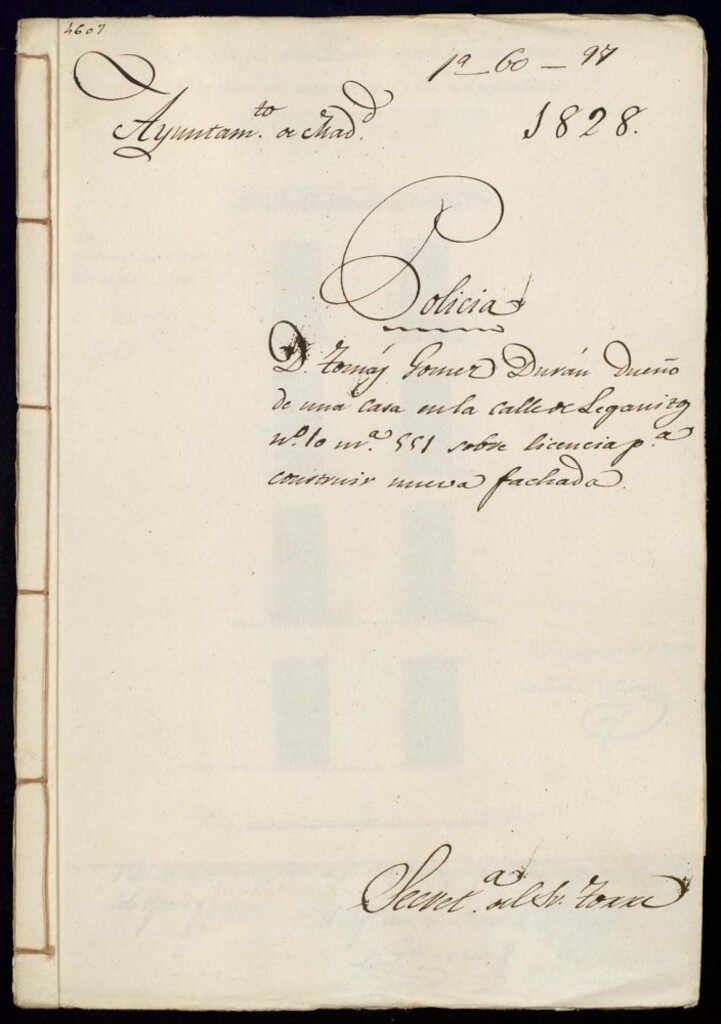 4607
1ª-60-97
Ayuntam.to de Mad.d
1828.
Policia
D. Tomás Gomez Durán dueño
de una casa en la calle de Leganitos
n.º 10 m.ª 551 sobre licencia p.a
construir nueva fachada.
Secret.a del Sr. Torre